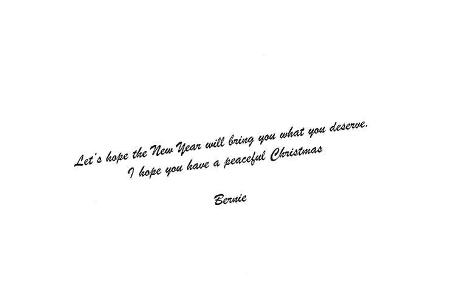 Let's hope the New Year will bring you what you deserve.
I hope you have a peaceful Christmas
Bernie